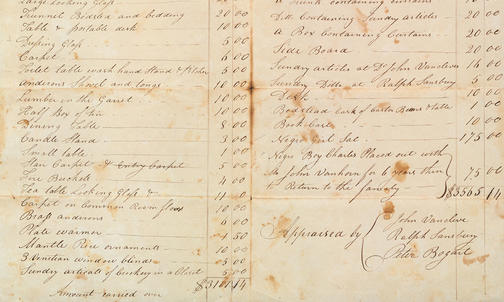 Large Looking Glass
Trunnel Bedsted and bedding 20 00
Table & Portable desk 10 00
Dressing Glass 5 00
Carpet 6 00
Toilet table wash hand Stand & Pitcher 5 00
Andirons Shovel and tongs 10 00
Lumber in the Garret 10 00
Half Box of tin 10 00
Dining Table 8 00
Candle Stand 3 00
Small table 1 00
Stair Carpet & Entry Carpet 5 00
Fire Buckets 4 00
Tea table Looking Glass &
Carpet on Common Room floor 10 00
Brass andirons 6 00
Plate warmer 1 50
Mantle Piece ornaments 10 00
3 Venitian window blinds 5 00
Sundry articals of Crockery in a Closet 5 00
Amount carried over
A Trunk containing curtains
Ditto Containing Sundry articles 20 00
A Box Containing Curtains 20 00
Side Board 20 00
Sundry articles at Dr John Vancleve 16 00
Sunday Ditto at Ralph Sansbury 5 00
Desk 10 00
Bedstead 1 00
Book Case 10 00
Negro Girl Sal 175 00
Negro Boy Charles Placed out with
Mr John Vanhorn for 6 years then 75 00
to Return to the family $3565 14
Appraised by
John Vancleve
Ralph Sansbury
Peter Bogart